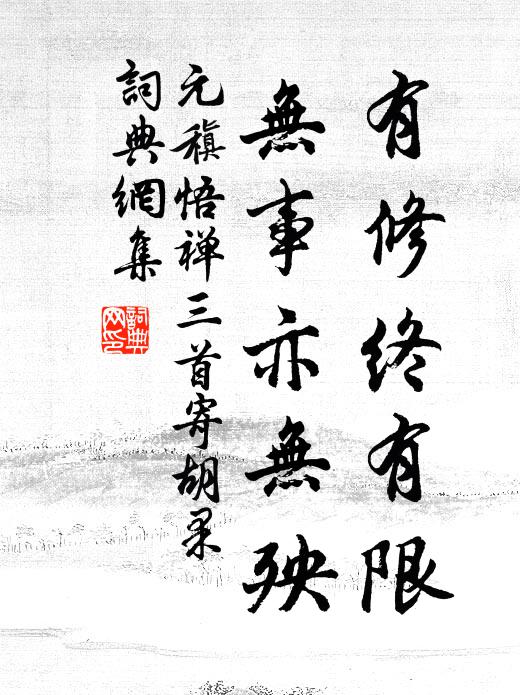 有修終有限
無事亦無殃
元稹悟禅三首寄胡果
詞典網集
詞典
网印